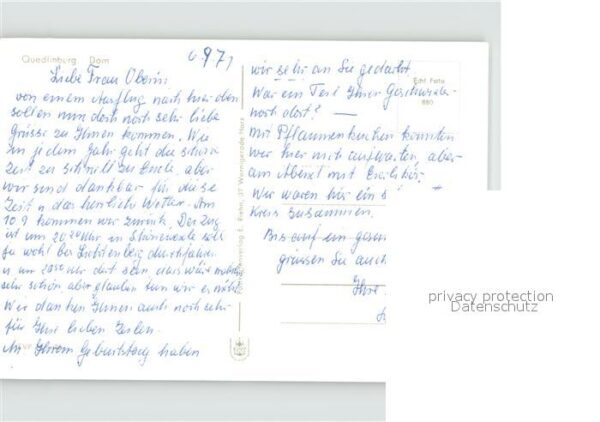 Quedlinburg Dom
6971
Liebe Frau Oberin
von einem Ausflug nach hier
sollen nun doch noch sehr liebe
Grüsse zu Ihnen kommen. Wie
in jedem Jahr geht die schöne
Zeit zu schnell zu Ende, aber
wir sind dankbar für diese
Zeit u das herrliche Wetter. Am
10.9 kommen wir zurück. Der Zug
ist um 20 Uhr in soll
ja wohl bei Lichtenberg durchfahren
u um Uhr dort sein, das wäre
sehr schön aber glauben tun wir es nicht
Wir danken Ihnen auch noch sehr
für Ihre lieben Zeilen.
An Ihrem Geburtstag haben
wir sehr an Sie gedacht
War ein Teil Ihrer Geschwister
noch dort? —
Mit Pflaumenkuchen könnten
wir hier nicht aufwarten, aber
am Abend mit
Wir waren hier ein
Kreis zusammen.
Bis auf ein
grüssen Sie auch
Ihre
Echt Foto
880
37 Wernigerode Harz
privacy protection
Datenschutz